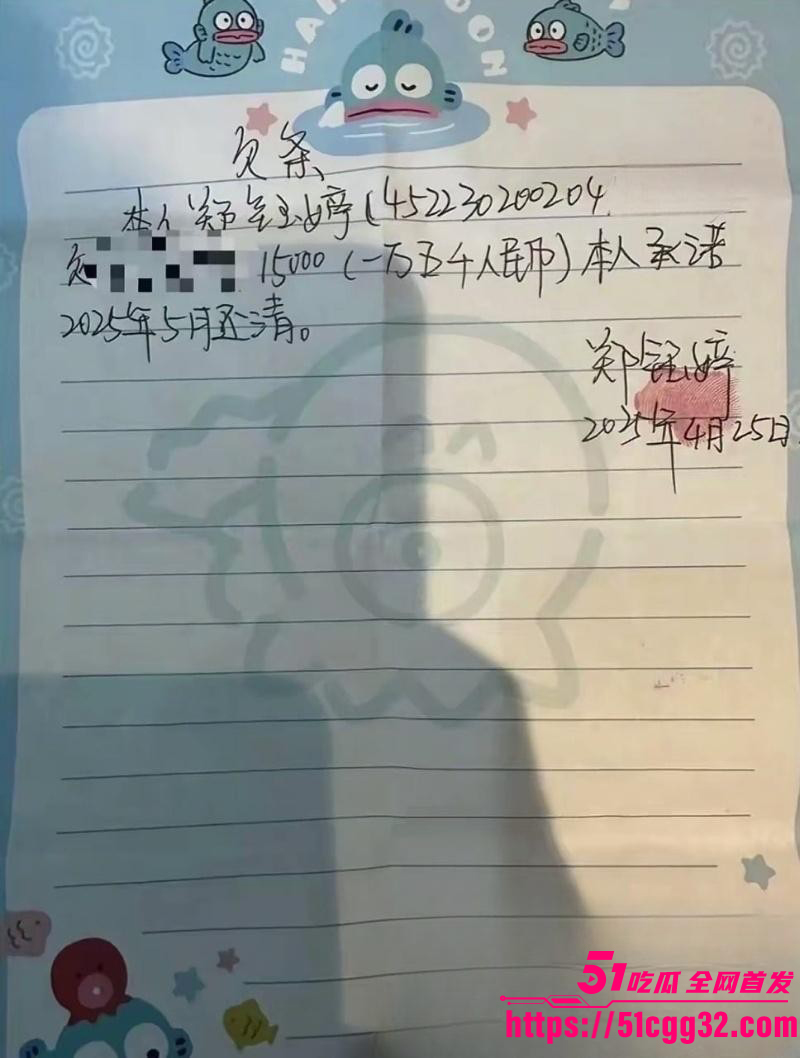 HAN OON
欠条
本人郑钰婷(452230200204
欠 15000(一万五千人民币)本人承诺
2025年5月还清。
郑钰婷
2025年4月25日.
51吃瓜 全网首发
https://51cgg32.com